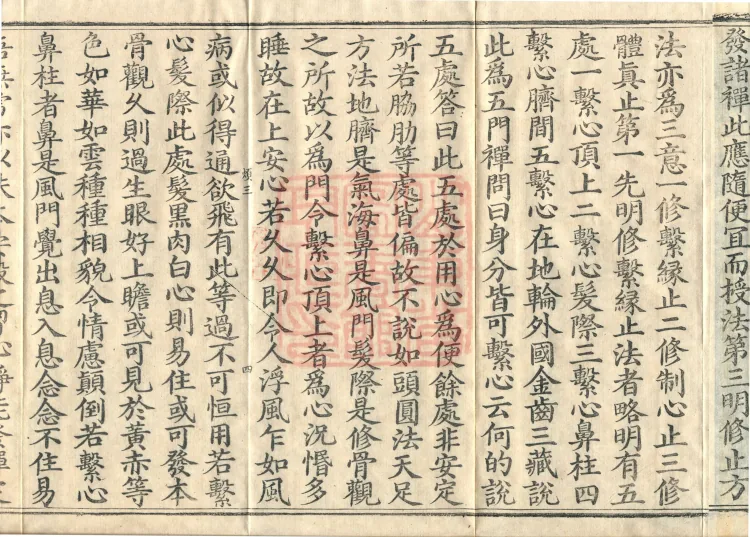 發諸禪此應隨便冝而授法第三明修止方
法亦爲三意一修繫縁止二修制心止三修
體真止第一先明修繫縁止法者略明有五
處一繫心頂上二繫心髮際三繫心鼻柱四
繫心臍間五繫心在地輪外國金齒三藏說
此爲五門禪問曰身分皆可繫心云何的說
五處答曰此五處於用心爲便餘處非安定
所若脇肋等處皆偏故不說如頭圓法天足
方法地臍是氣海鼻是風門髮際是修骨觀
之所故以爲門今繫心頂上者爲心沉惛多
睡故在上安心若久久即令人浮風乍如風
三 四
病或似得通欲飛有此等過不可恒用若繫
心髮際此處髮黒肉白心則易住或可發本
骨觀久則過生眼好上瞻或可見於黃赤等
色如華如雲種種相貌令情慮顛倒若繫心
鼻柱者鼻是風門覺出息入息念念不住易